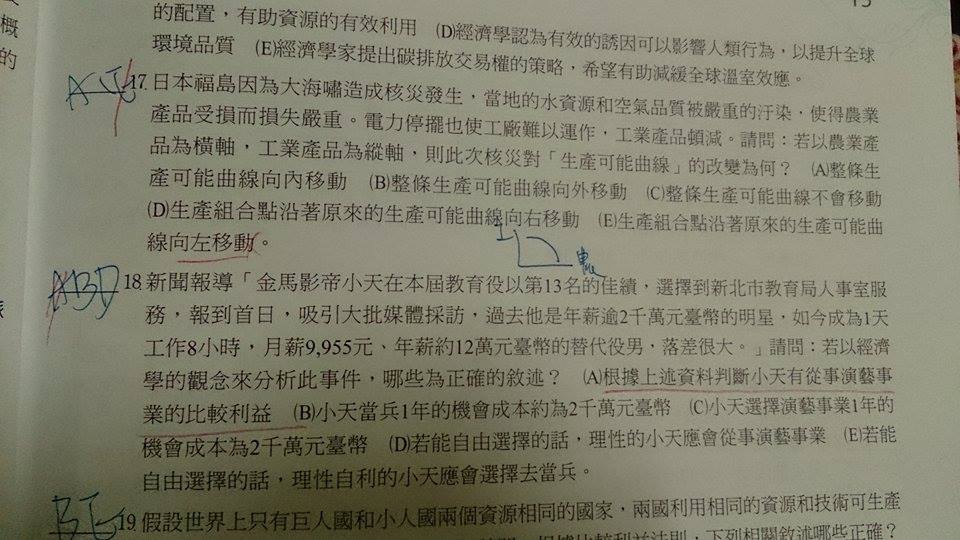 的配置，有助資源的有效利用　(D)經濟學認為有效的誘因可以影響人類行為，以提升全球
環境品質　(E)經濟學家提出碳排放交易權的策略，希望有助減緩全球溫室效應。
17.日本福島因為大海嘯造成核災發生，當地的水資源和空氣品質被嚴重的汙染，使得農業
產品受損而損失嚴重。電力停擺也使工廠難以運作，工業產品頓減。請問：若以農業產
品為橫軸，工業產品為縱軸，則此次核災對「生產可能曲線」的改變為何？　(A)整條生
產可能曲線向內移動　(B)整條生產可能曲線向外移動　(C)整條生產可能曲線不會移動
(D)生產組合點沿著原來的生產可能曲線向右移動　(E)生產組合點沿著原來的生產可能曲
線向左移動。
ABD
18.新聞報導「金馬影帝小天在本屆教育役以第13名的佳績，選擇到新北市教育局人事室服
務，報到首日，吸引大批媒體採訪，過去他是年薪逾2千萬元臺幣的明星，如今成為1天
工作8小時，月薪9,955元、年薪約12萬元臺幣的替代役男，落差很大。」請問：若以經濟
學的觀念來分析此事件，哪些為正確的敘述？　(A)根據上述資料判斷小天有從事演藝事
業的比較利益　(B)小天當兵1年的機會成本約為2千萬元臺幣　(C)小天選擇演藝事業1年的
機會成本為2千萬元臺幣　(D)若能自由選擇的話，理性的小天應會從事演藝事業　(E)若能
自由選擇的話，理性自利的小天應會選擇去當兵。
BE
19.假設世界上只有巨人國和小人國兩個資源相同的國家，兩國利用相同的資源和技術可生產
下列相關敘述哪些正確？